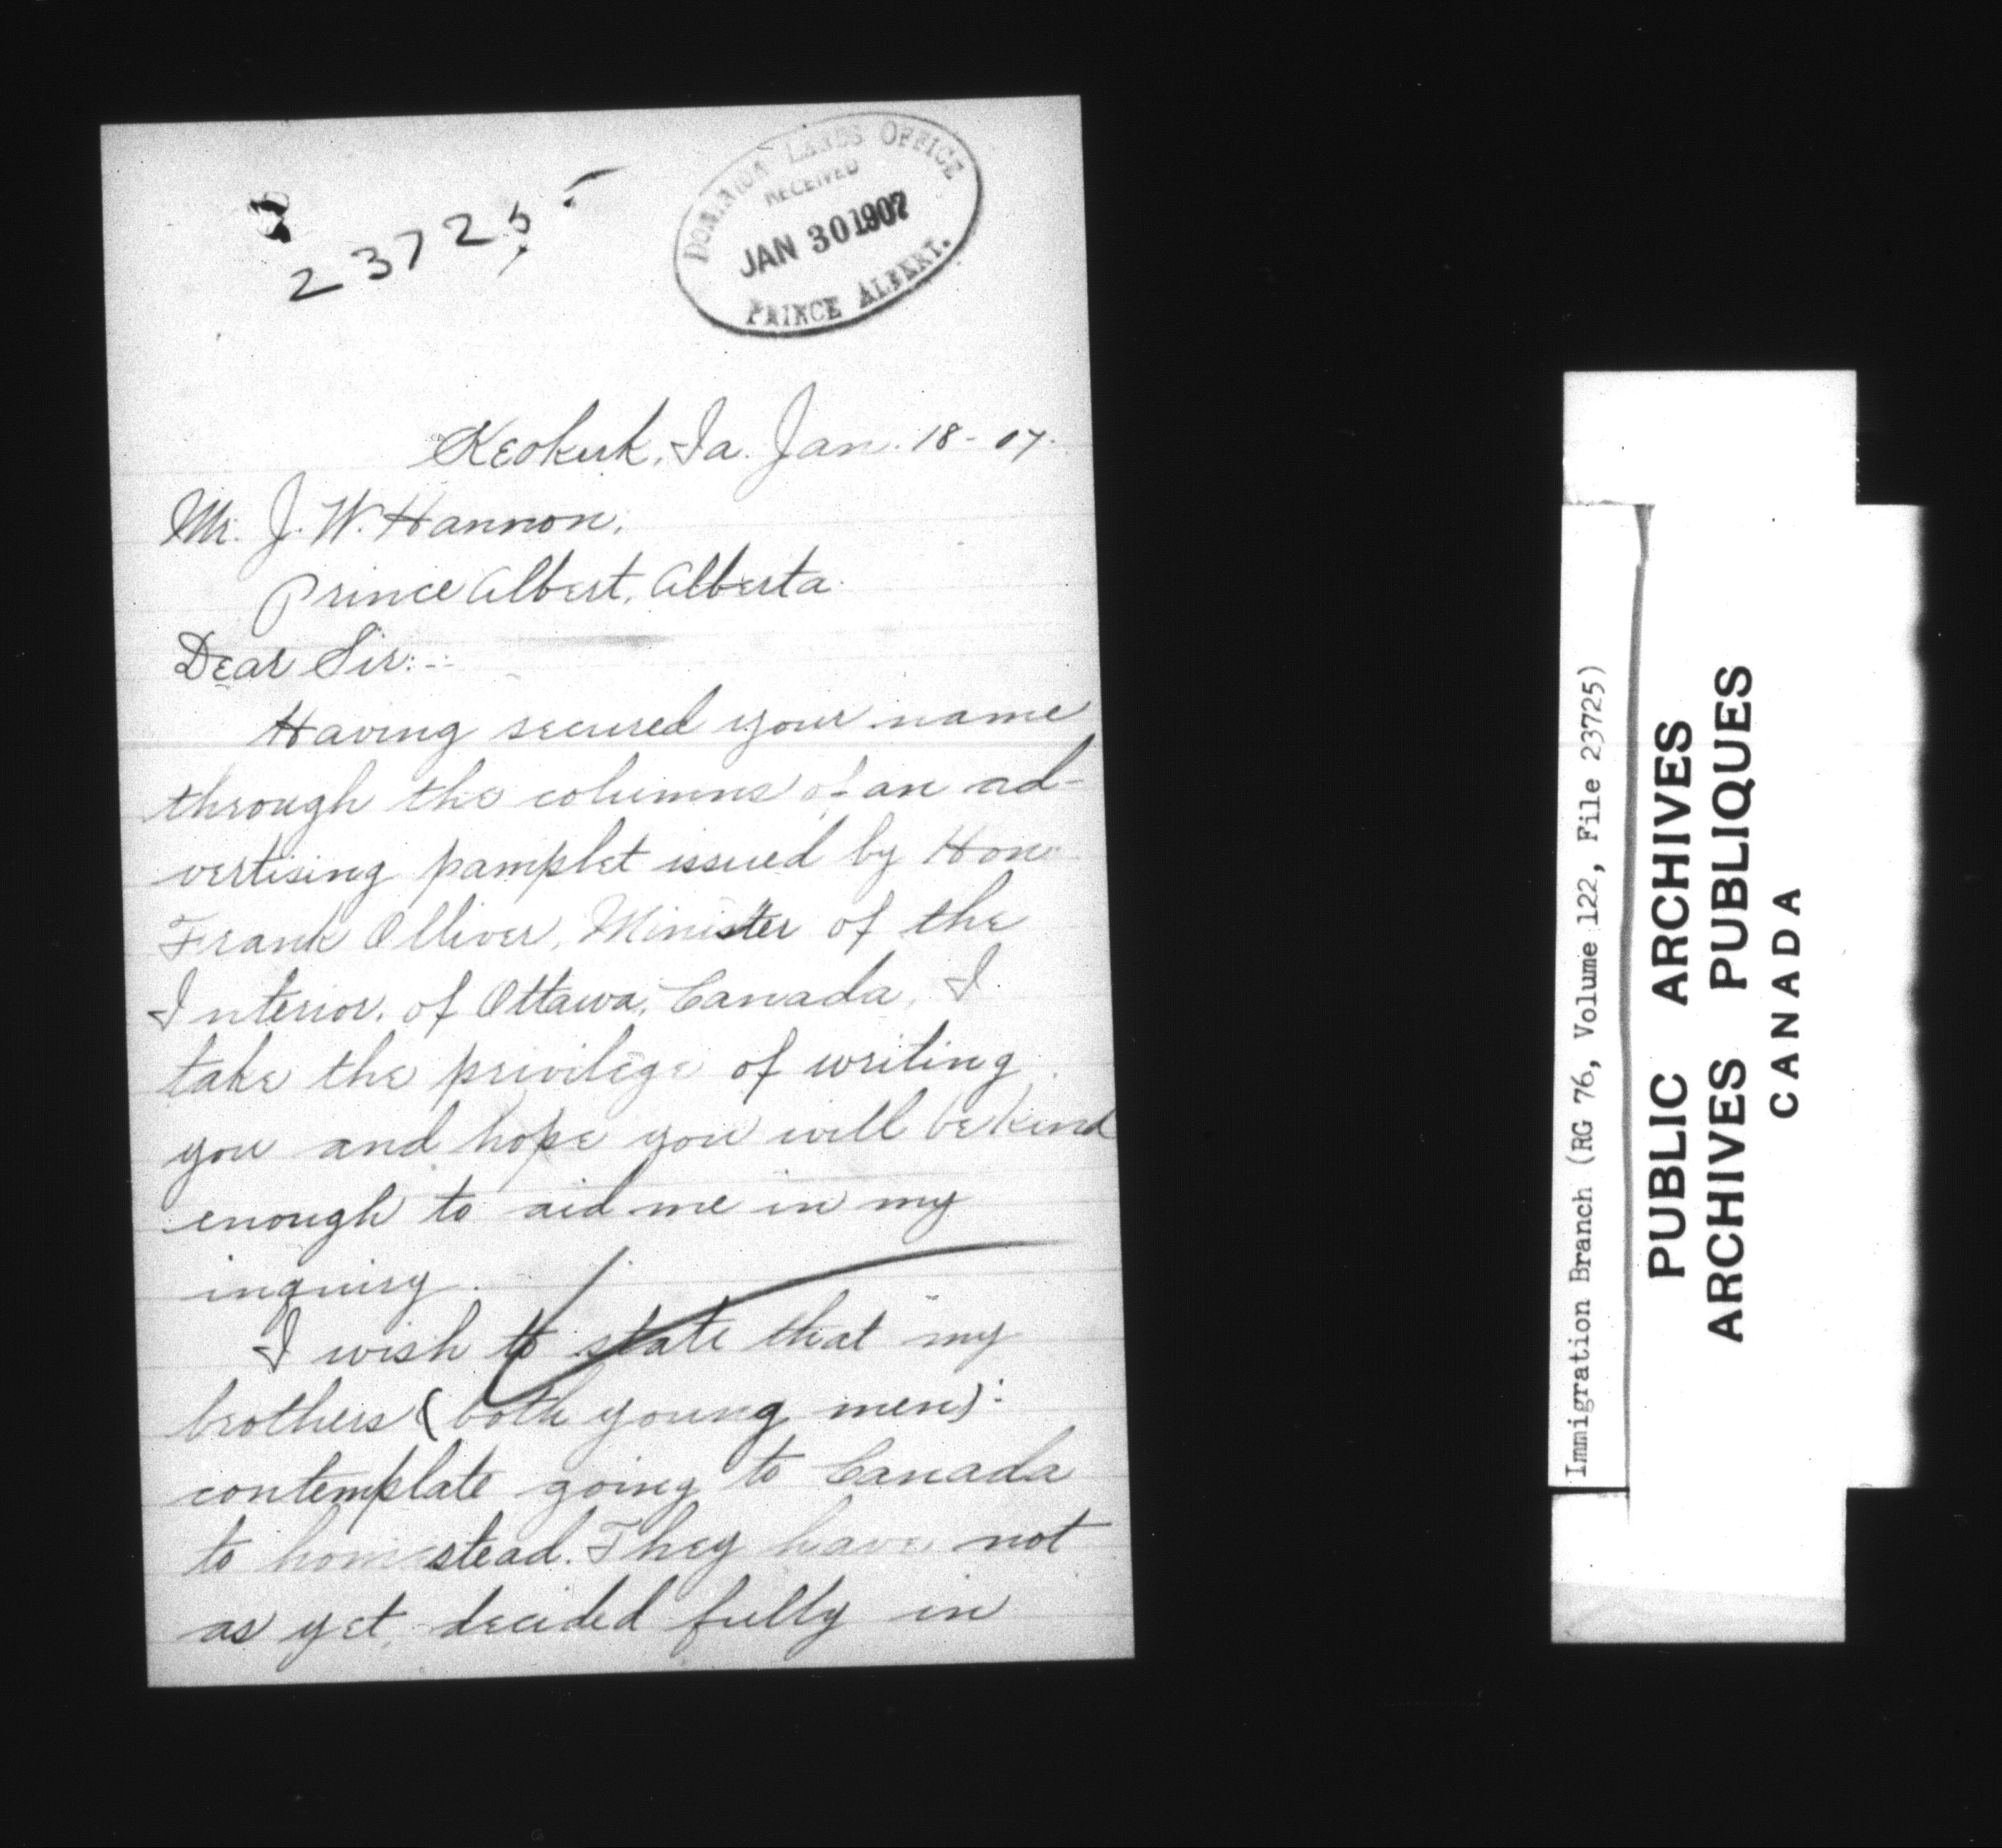 23725
DOMINION LANDS OFFICE
RECEIVED
JAN 30 1907
PRINCE ALBERT.
Keokuk, Ia. Jan. 18-07.
Mr. J. W. Hannon,
Prince Albert, Alberta.
Dear Sir:-
Having secured your name
through the columns of an ad-
vertising pamplet issued by Hon.
Frank Olliver, Minister of the
Interior, of Ottawa, Canada, I
take the privilege of writing
you and hope you will be kind
enough to aid me in my
inquiry.
I wish to state that my
brothers (both young men)
contemplate going to Canada
to homestead. They have not
as yet, decided fully in
Immigration Branch (RG 76, Volume 122, File 23725)
PUBLIC ARCHIVES
ARCHIVES PUBLIQUES
CANADA